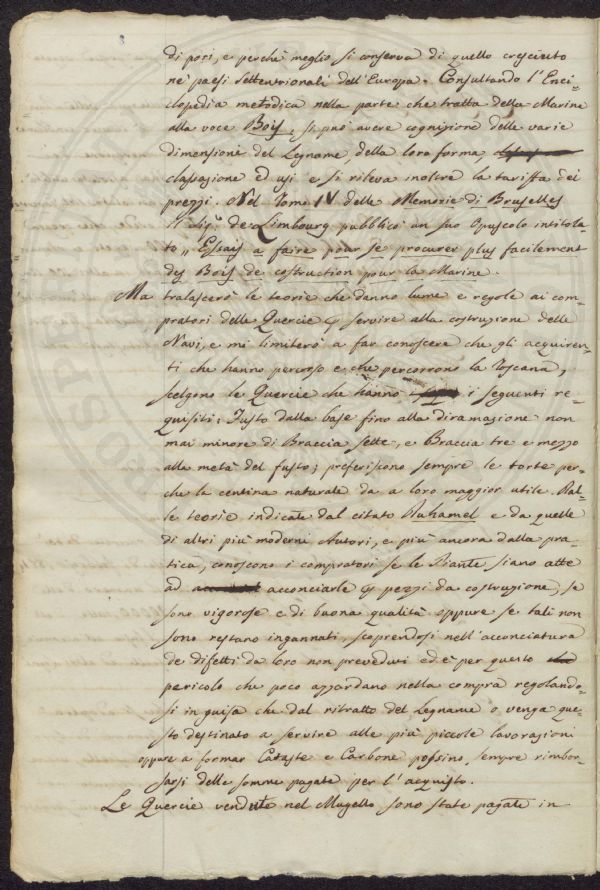 di pori, e perchè meglio si conserva di quello cresciuto
ne' paesi settentrionali dell'Europa. Consultando l'Enci=
clopedia metodica nella parte che tratta della Marine
alla voce Bois, si può avere cognizione delle varie
dimensioni del Legname, della loro forma,
classazione ed usi e si rileva inoltre la tariffa dei
prezzi. Nel Tomo IV delle Memorie di Bruselles
il Sigr. de Limbourg pubblicò un suo Opuscolo intitola=
to „ Essais a faire pour se procurer plus facilement
des Bois de costruction pour la Marine.
Ma tralascerò le teorie che danno lume e regole ai com=
pratori delle Quercie p servire alla costruzione delle
Navi, e mi limiterò a far conoscere che gli acquiren=
ti che hanno percorso e che percorrono la Toscana,
scelgono le Quercie che hanno i seguenti re=
quisiti: Fusto dalla base fino alla diramazione non
mai minore di Braccia sette, e Braccia tre e mezzo
alla metà del fusto; preferiscono sempre le torte per=
che la centina naturale da a loro maggior utile. Dal=
le teorie indicate dal citato Duhamel e da quelle
di altri più moderni Autori, e più ancora dalla pra=
tica, conoscono i compratori se le Piante siano atte
ad acconciarle p pezzi da costruzione, se
sono vigorose e di buona qualità oppure se tali non
sono restano ingannati, scoprendosi nell'acconciatura
de difetti da loro non preveduti ed è per questo
pericolo che poco azzardano nella compra regolando=
si in guisa che dal ritratto del Legname o venga que=
sto destinato a servire alle più piccole lavorazioni
oppure a formar Cataste e Carbone possino sempre rimbor=
sarsi delle somme pagate per l'acquisto.
Le Quercie vendute nel Mugello sono state pagate in